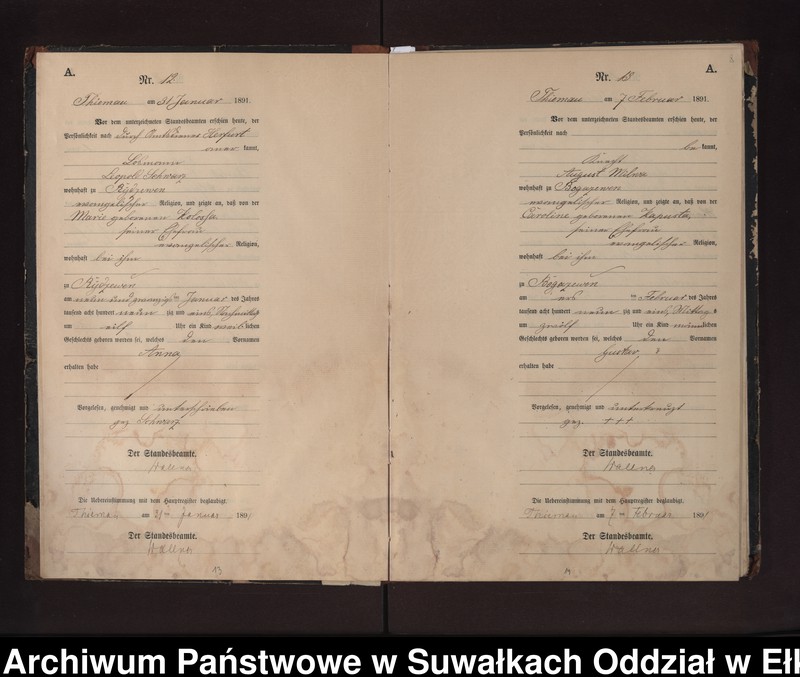 A.
Nr. 12
am 31 Januar 1891.
Vor dem unterzeichneten Standesbeamten erschien heute, der
Persönlichkeit nach durch
kannt,
Leopold Schwarz
wohnhaft zu
evangelischer Religion, und zeigte an, daß von der
Marie geborenen
seiner Ehefrau
evangelischer Religion,
wohnhaft bei ihm
zu
am neun und zwanzigsten Januar des Jahres
tausend acht hundert neun zig und eins,
um elf Uhr ein Kind weiblichen
Geschlechts geboren worden sei, welches den Vornamen
Anna
erhalten habe
Vorgelesen, genehmigt und unterschrieben
gez. Schwarz
Der Standesbeamte.
Die Uebereinstimmung mit dem Hauptregister beglaubigt.
am 31ten Januar 1891
Der Standesbeamte.
13
A.
Nr. 13
am 7 Februar 1891.
Vor dem unterzeichneten Standesbeamten erschien heute, der
Persönlichkeit nach
be kannt,
Knecht
August
wohnhaft zu
evangelischer Religion, und zeigte an, daß von der
Caroline geborenen Kapusta,
seiner Ehefrau
evangelischer Religion,
wohnhaft bei ihm
zu
am Februar des Jahres
tausend acht hundert neun zig und eins, Mittags
um zwölf Uhr ein Kind männlichen
Geschlechts geboren worden sei, welches den Vornamen
Gustav
erhalten habe
Vorgelesen, genehmigt und unterkreuzt
gez. +++
Der Standesbeamte.
Die Uebereinstimmung mit dem Hauptregister beglaubigt.
am 7ten Februar 1891
Der Standesbeamte.
14
Archiwum Państwowe w Suwałkach Oddział w Ełk